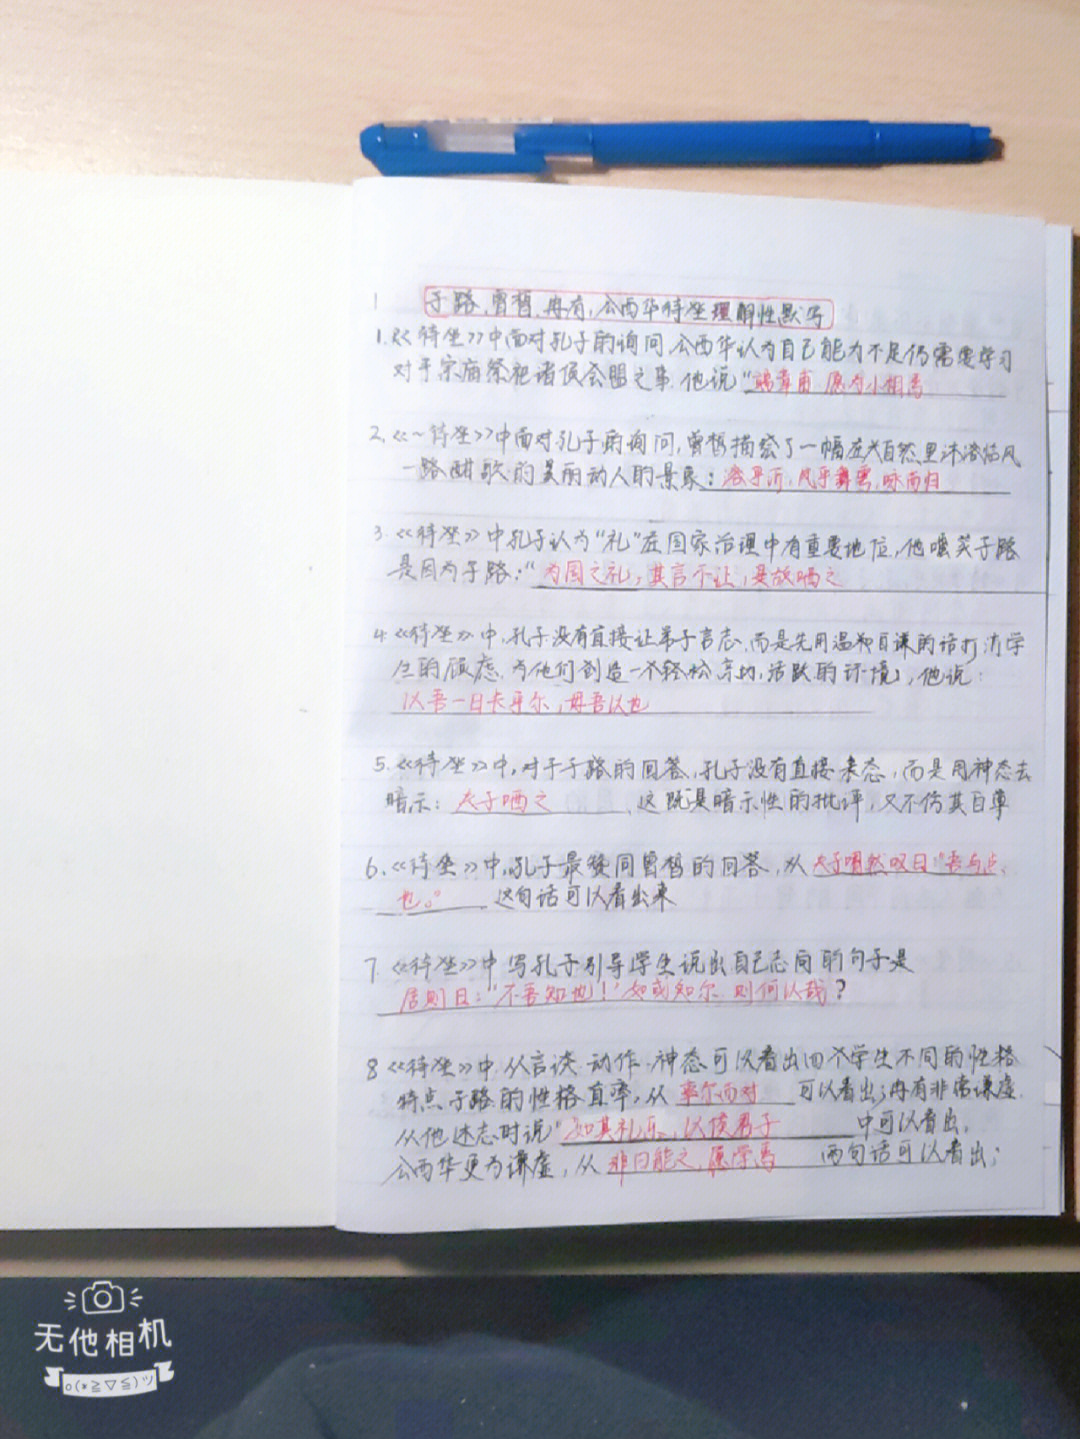 1 子路、曾皙、冉有、公西华侍坐理解性默写
1.《侍坐》中面对孔子的询问,公西华认为自己能力不足仍需要学习
对于宗庙祭祀诸侯会盟之事.他说"端章甫 愿为小相焉
2.《~侍坐》中面对孔子的询问,曾皙描绘了一幅在大自然里沐浴临风
一路酣歌的美丽动人的景象:浴乎沂,风乎舞雩,咏而归
3.《侍坐》中孔子认为"礼"在国家治理中有重要地位,他嗤笑子路
是因为子路:"为国之礼,其言不让,是故哂之
4.《侍坐》中,孔子没有直接让弟子言志,而是先用温和自谦的话打消学
生的顾虑.为他们创造一个轻松亲切,活跃的环境,他说:
以吾一日长乎尔,毋吾以也
5.《侍坐》中,对于子路的回答,孔子没有直接表态,而是用神态去
暗示: 夫子哂之 、这既是暗示性的批评,又不伤其自尊
6.《侍坐》中,孔子最赞同曾皙的回答,从 夫子喟然叹曰:"吾与点
也。" 这句话可以看出来
7.《侍坐》中写孔子引导学生说出自己志向的句子是
居则曰:"不吾知也!"如或知尔 则何以哉?
8《侍坐》中.从言谈.动作.神态可以看出四个学生不同的性格
特点.子路的性格直率,从 率尔而对 可以看出;冉有非常谦虚.
从他述志时说"如其礼乐,以俟君子 中可以看出.
公西华更为谦虚,从 非曰能之,愿学焉 两句话可以看出;
无他相机
o(*≧▽≦)ツ